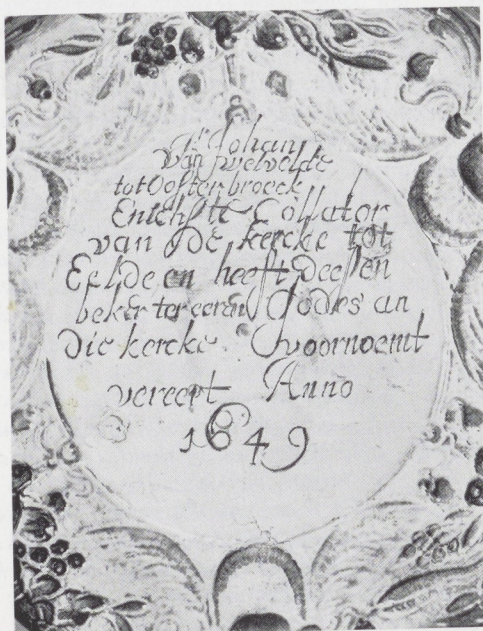 Jr Johan
van Welvelde
tot Oosterbroeck
Enichste Collator
van De kercke tot
Eelde en heeft deesen
beker ter eeren Godes an
Die kercke voornoemt
vereert Anno
1649